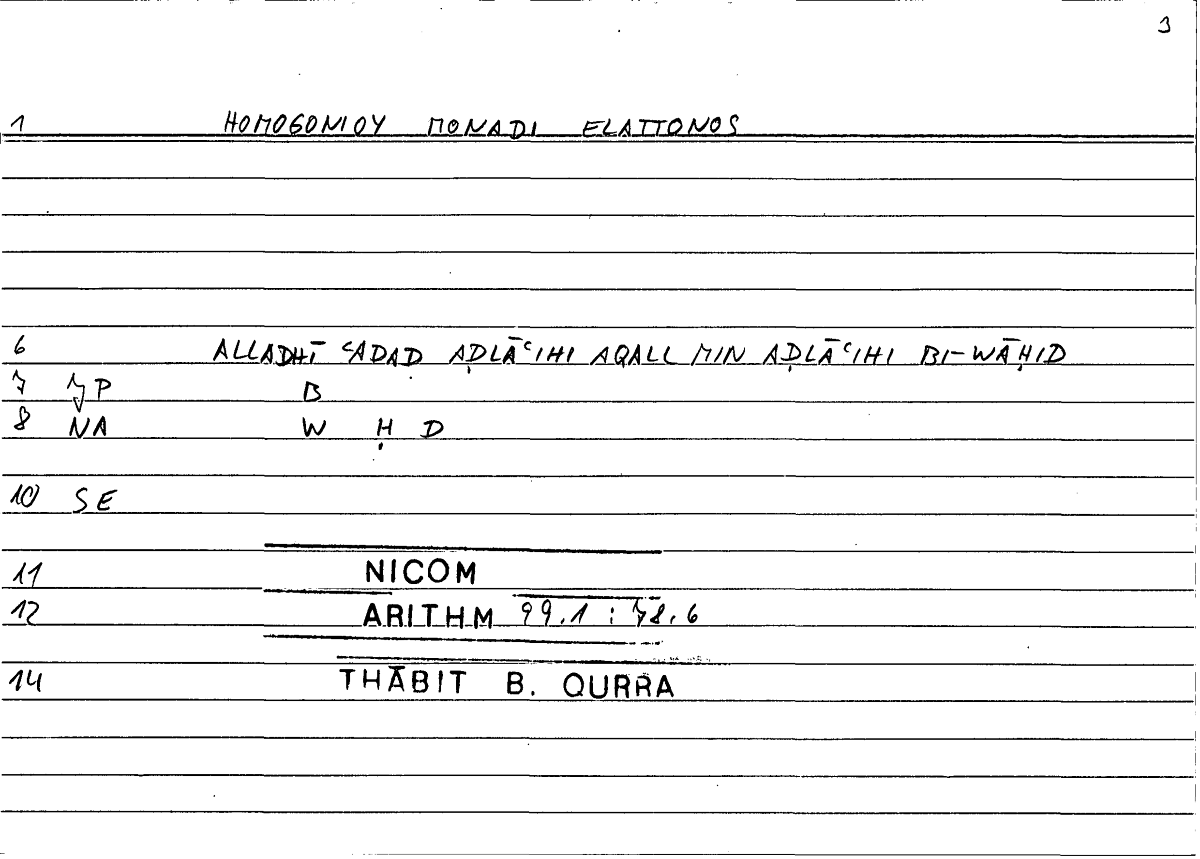 3
1 HOMOGONIOY MONADI ELATTONOS
6 ALLADHĪ ʿADAD AḌLĀʿIHI AQALL MIN AḌLĀʿIHI BI-WĀḤID
7 P B
8 NA W Ḥ D
10 SE
11 NICOM
12 ARITHM 99.1 : 78.6
14 THĀBIT B. QURRA